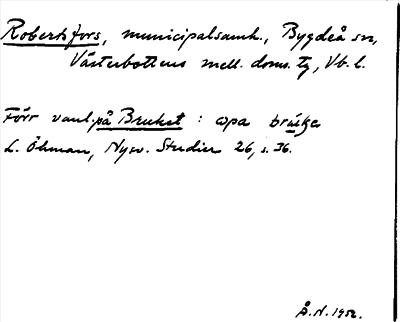 Robertsfors, municipalsamh., Bygdeå sn,
Västerbottens mell. doms. tg, Vb. l.
Förr vanl. på Bruket : opa brúke
L. Öhman, Nysv. Studier 26, s. 36.
Å. N. 1952.